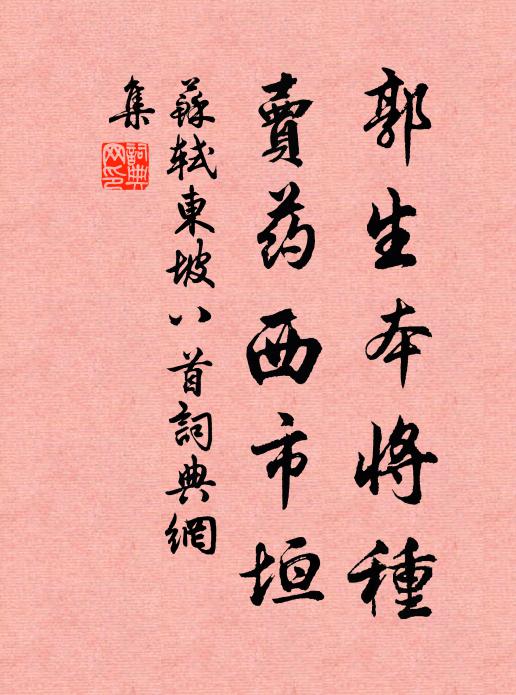 郭生本将種
賣药西市垣
蘇轼東坡八首詞典網
集
詞典网印